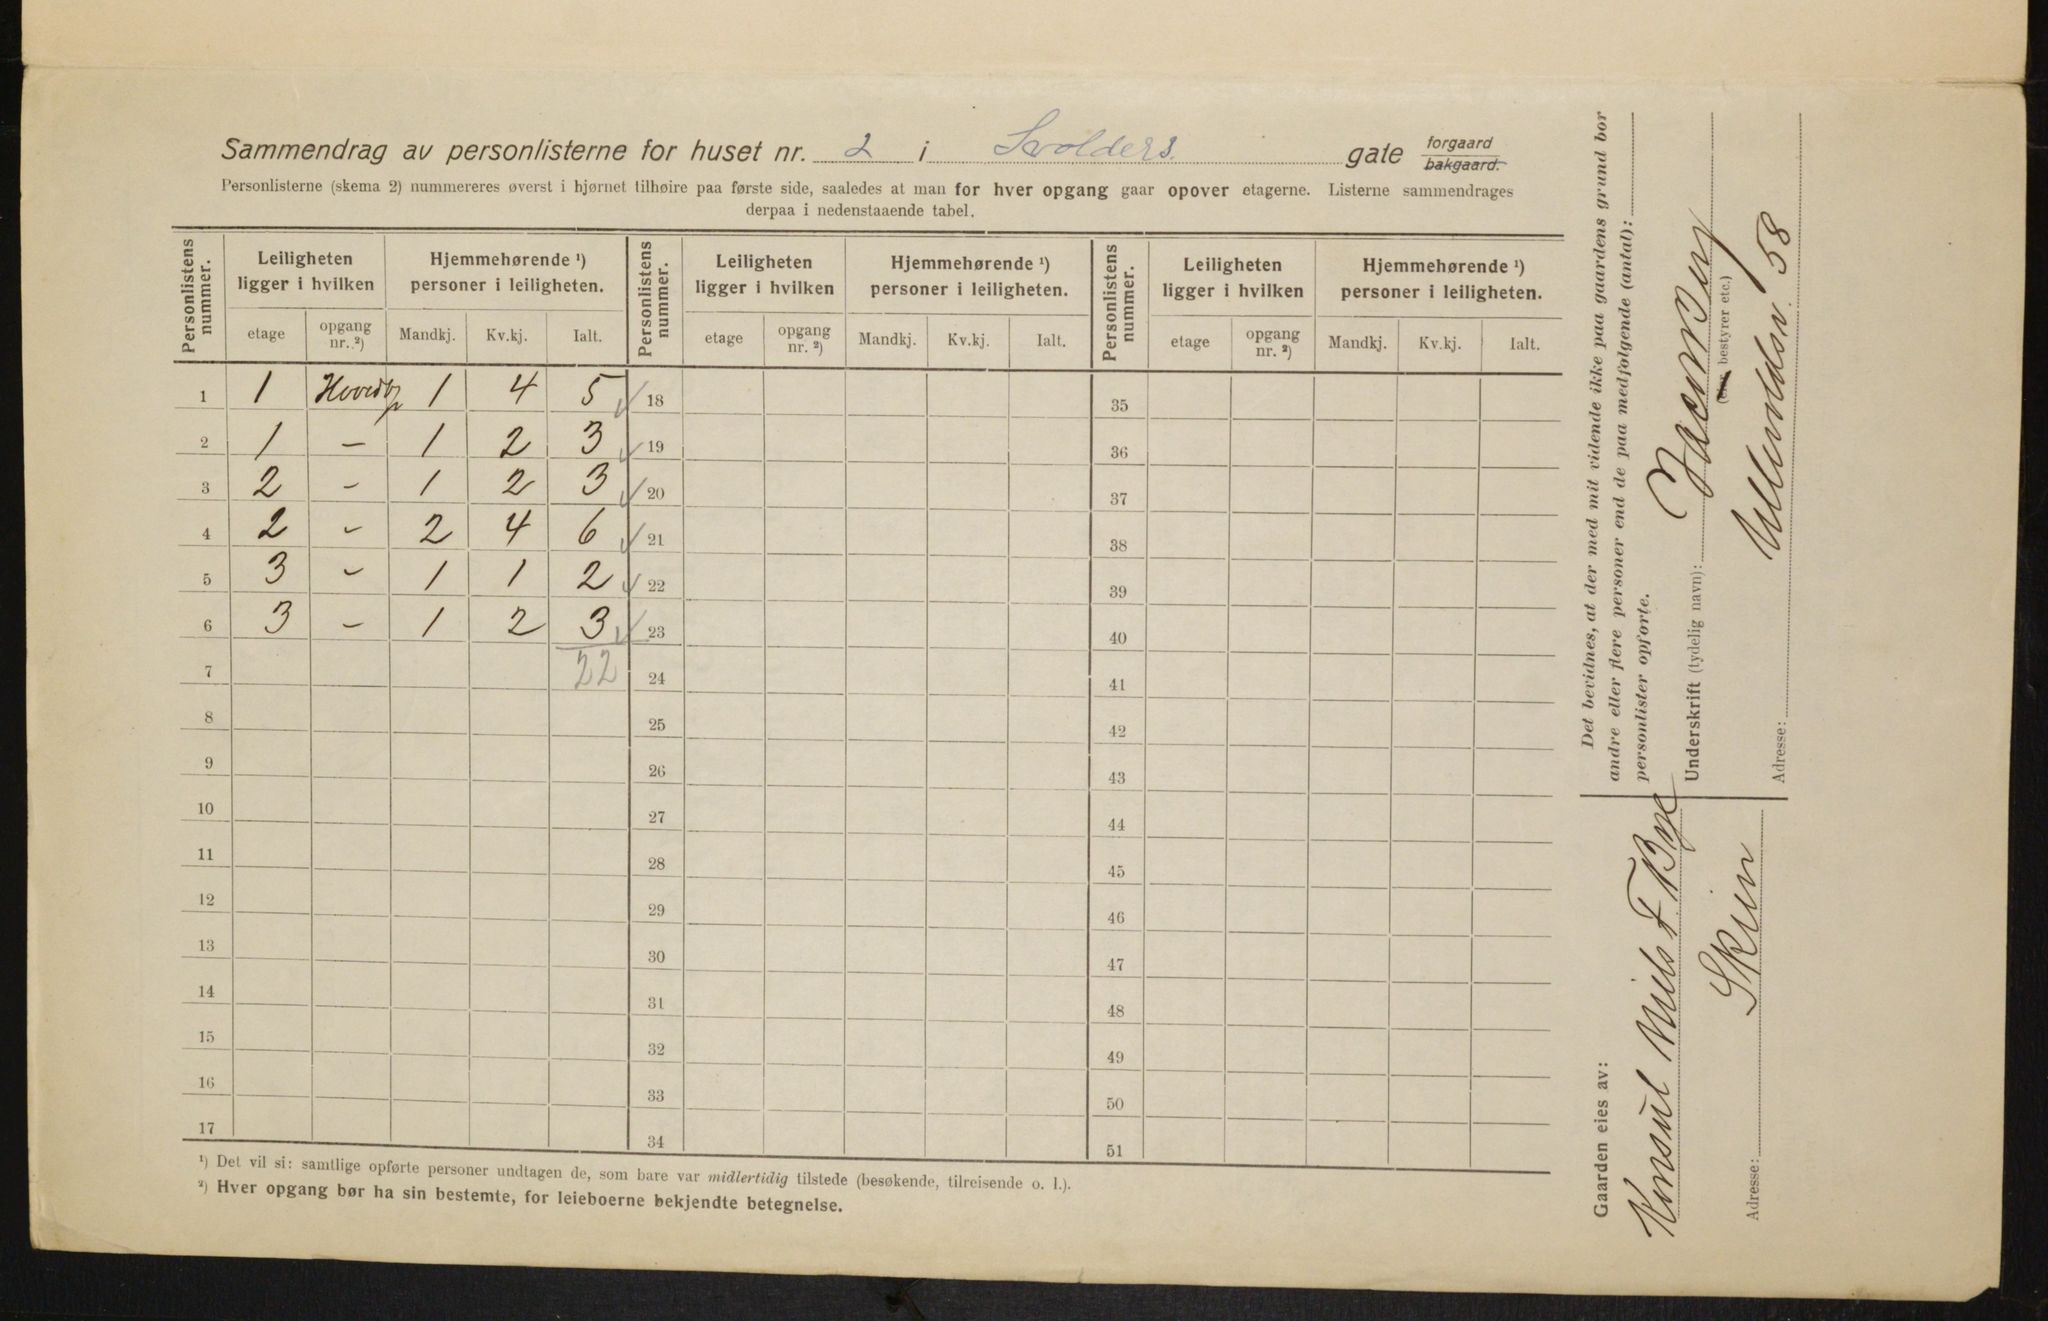 Sammendrag av personlisterne for huset nr. 2 i Svolders gate forgaard
bakgaard.
Personlisterne (skema 2) nummereres øverst i hjørnet tilhøire paa første side, saaledes at man for hver opgang gaar opover etagerne. Listerne sammendrages
derpaa i nedenstaaende tabel.
Personlistens nummer. Leiligheten ligger i hvilken Hjemmehørende ¹) personer i leiligheten. Personlistens nummer. Leiligheten ligger i hvilken Hjemmehørende ¹) personer i leiligheten. Personlistens nummer. Leiligheten ligger i hvilken Hjemmehørende ¹) personer i leiligheten.
etage opgang nr. ²) Mandkj. Kv.kj. Ialt. etage opgang nr. ²) Mandkj. Kv.kj. Ialt. etage opgang nr. ²) Mandkj. Kv.kj. Ialt.
1 1 1 4 5 18 35
2 1 - 1 2 3 19 36
3 2 - 1 2 3 20 37
4 2 - 2 4 6 21 38
5 3 - 1 1 2 22 39
6 3 - 1 2 3 23 40
7 22 24 41
8 25 42
9 26 43
10 27 44
11 28 45
12 29 46
13 30 47
14 31 48
15 32 49
16 33 50
17 34 51
¹) Det vil si: samtlige opførte personer undtagen de, som bare var midlertidig tilstede (besøkende, tilreisende o. l.).
²) Hver opgang bør ha sin bestemte, for leieboerne bekjendte betegnelse.
Det bevidnes, at der med mit vidende ikke paa gaardens grund bor
andre eller flere personer end de paa medfølgende (antal):
personlister opførte.
Underskrift (tydelig navn):
(eier bestyrer etc.)
Adresse: 58
Gaarden eies av:
Konsul Niels F. Bye
Adresse: Skien